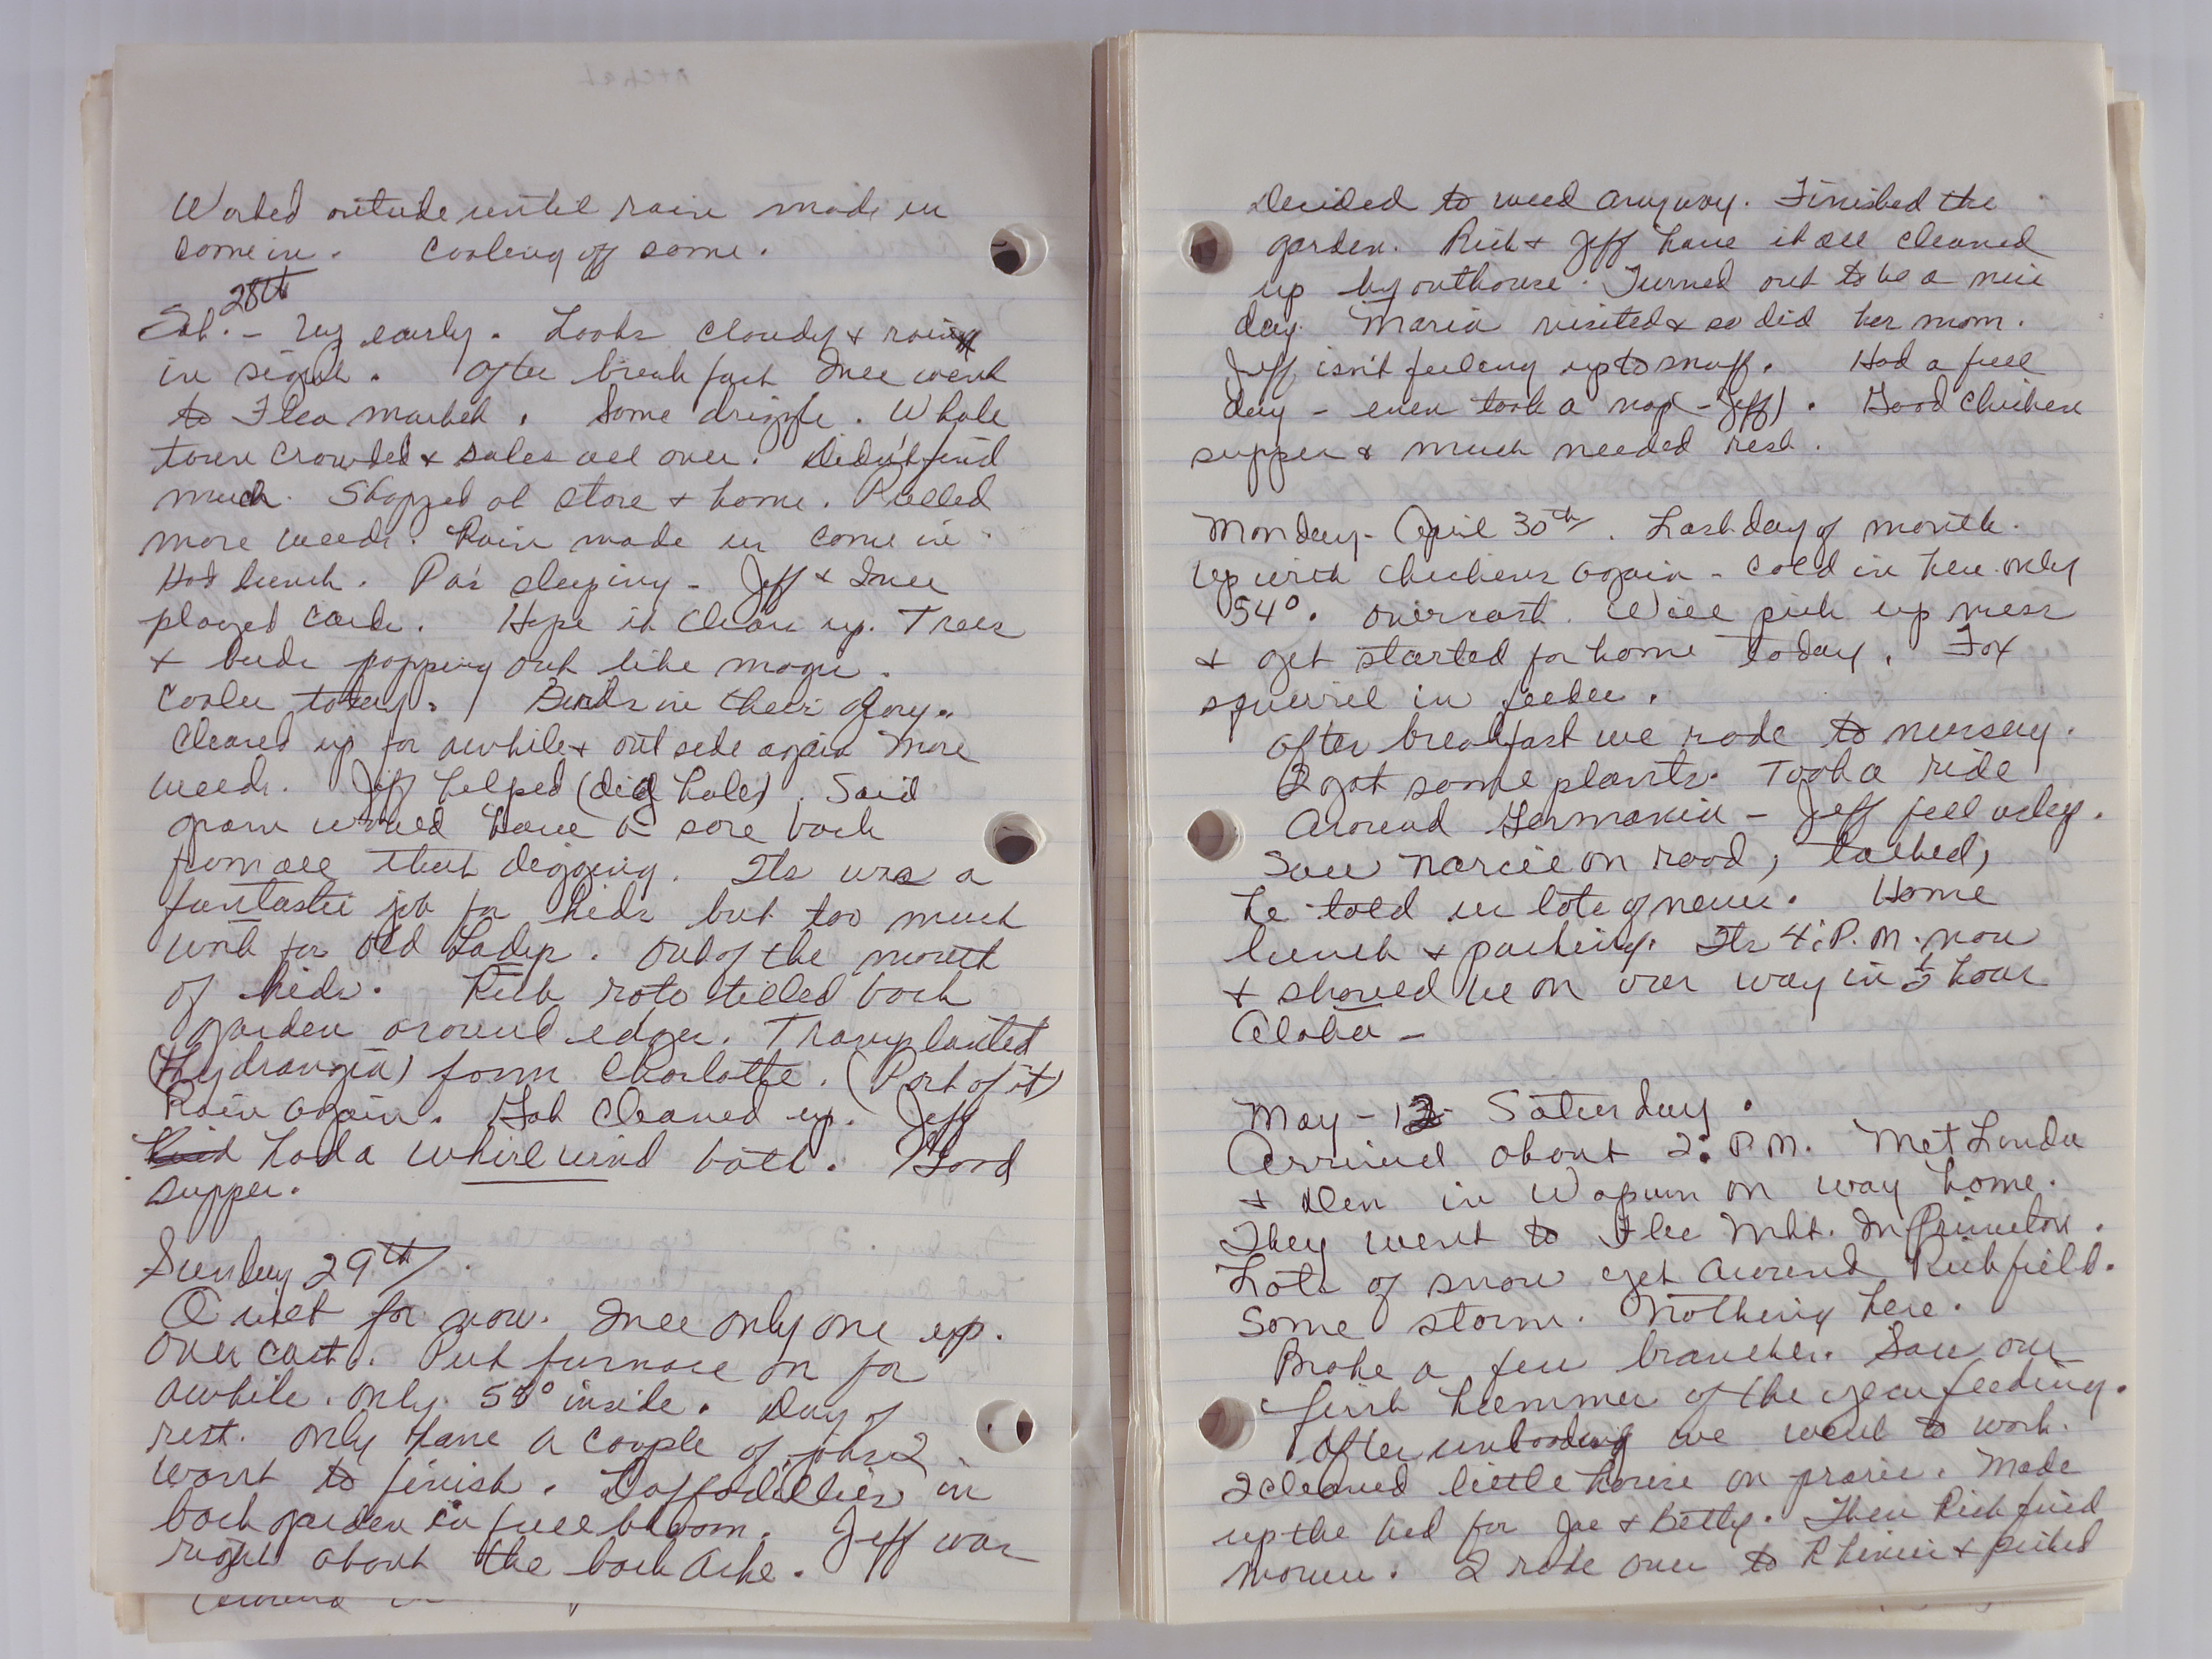 Worked outside until rain made us
come in. Cooling off some.
28th
Sat. - Up early. Looks cloudy & rain
in sight. After breakfast Inee went
to Flea market. Some drizzle. Whole
town crowded & sales all over. Didn't find
much. Shopped at store & home. Pulled
more weeds. Rain made us come in.
Had lunch. Pa's sleeping - Jeff & Inee
played cards. Hope it clears up. Trees
& buds popping out like magic.
Cooler today. Birds in their glory.
Cleared up for awhile & outside again more
weeds. Jeff helped (dig holes). Said
gram would have a sore back
from all that digging. Its was a
funtastic job for kids but too much
work for old Ladys. Out of the mouth
of kids. Rich roto tilled back
garden around edges. Transplanted
(Hydrangia) from Charlotte. (Part of it)
Rain again. Got cleaned up. Jeff
had a whirlwind bath. Good
supper.
Sunday 29th.
Quiet for now. Inee only one up.
Overcast. Put furnace on for
awhile. Only 58° inside. Day of
rest. Only have a couple of jobs I
want to finish. Daffodillies in
back garden in full bloom. Jeff was
right about the back ache.
Decided to weed anyway. Finished the
garden. Rich & Jeff have it all cleaned
up by outhouse. Turned out to be a nice
day. Maria visited & so did her mom.
Jeff isn't feeling up to snuff. Had a full
day - even took a nap - (Jeff). Good chicken
supper & much needed rest.
Monday - April 30th. Last day of month.
Up with chickens again - cold in here only
54°. Overcast. Will pick up mess
& get started for home today. Fox
squirrel in feeder.
After breakfast we rode to nursery.
I got some plants. Took a ride
around Germania - Jeff fell asleep.
Saw Narcie on road, talked,
he told us lots of news. Home
lunch & packing. Its 4: P.M. now
& should be on our way in ½ hour
Aloha -
May - 12 - Saturday.
Arrived about 2: P.M. Met Linda
& Den in Waupun on way home.
They went to Flee Mkt. In Princeton.
Lots of snow yet around Richfield.
Some storm. Nothing here.
Broke a few branches. Saw our
first hummer of the year feeding.
After unloading we went to work.
I cleaned little house on prarie. Made
up the bed for Joe & Betty. Then Rich fixed
mower. I rode over to & picked